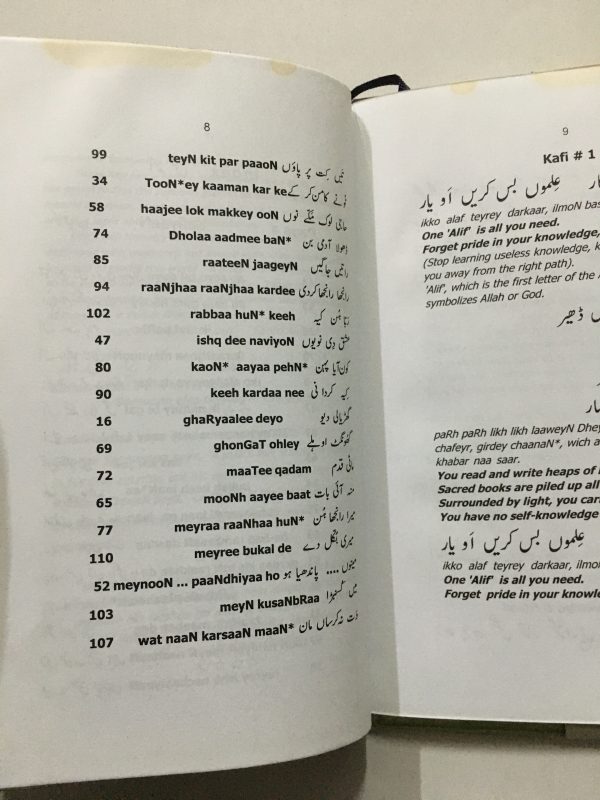 8
99 teyN kit par paaoN تیں کِت پر پاؤں
34 TooN*ey kaaman kar ke ٹونے کامن کر کے
58 haajee lok makkey ooN حاجی لوک مکّے نوں
74 Dholaa aadmee baN* ڈھولا آدمی بن
85 raateeN jaageyN راتیں جاگیں
94 raaNjhaa raaNjhaa kardee رانجھا رانجھا کردی
102 rabbaa huN* keeh ربّا ہُن کیہ
47 ishq dee naviyoN عشق دی نویوں
80 kaoN* aayaa pehN* کون آیا پہن
90 keeh kardaa nee کیہ کردا نی
16 ghaRyaalee deyo گھڑیالی دیو
69 ghonGaT ohley گھونگٹ اوہلے
72 maaTee qadam ماٹی قدم
65 mooNh aayee baat منہ آئی بات
77 meyraa raaNhaa huN* میرا رانجھا ہُن
110 meyree bukal de میری بُکّل دے
52 meynooN ... paaNdhiyaa ho مینوں .... پاندھیا ہو
103 meyN kusaNbRaa میں کُسنبڑا
107 wat naaN karsaaN maaN* وَت نہ کرساں مان
9
Kafi # 1
عِلموں بس کریں اَو یار
ikko alaf teyrey darkaar, ilmoN bas
One 'Alif' is all you need.
Forget pride in your knowledge,
(Stop learning useless knowledge,
you away from the right path).
'Alif', which is the first letter of the
symbolizes Allah or God.
ڈھیر
paRh paRh likh likh laaweyN Dhey
chafeyr, girdey chaanaN*, wich a
khabar naa saar.
You read and write heaps of
Sacred books are piled up all
Surrounded by light, you
You have no self-knowledge
عِلموں بس کریں اَو یار
ikko alaf teyrey darkaar, ilmoN
One 'Alif' is all you need.
Forget pride in your